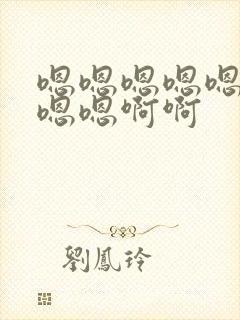 嗯嗯嗯嗯嗯
嗯嗯啊啊
劉鳳玲